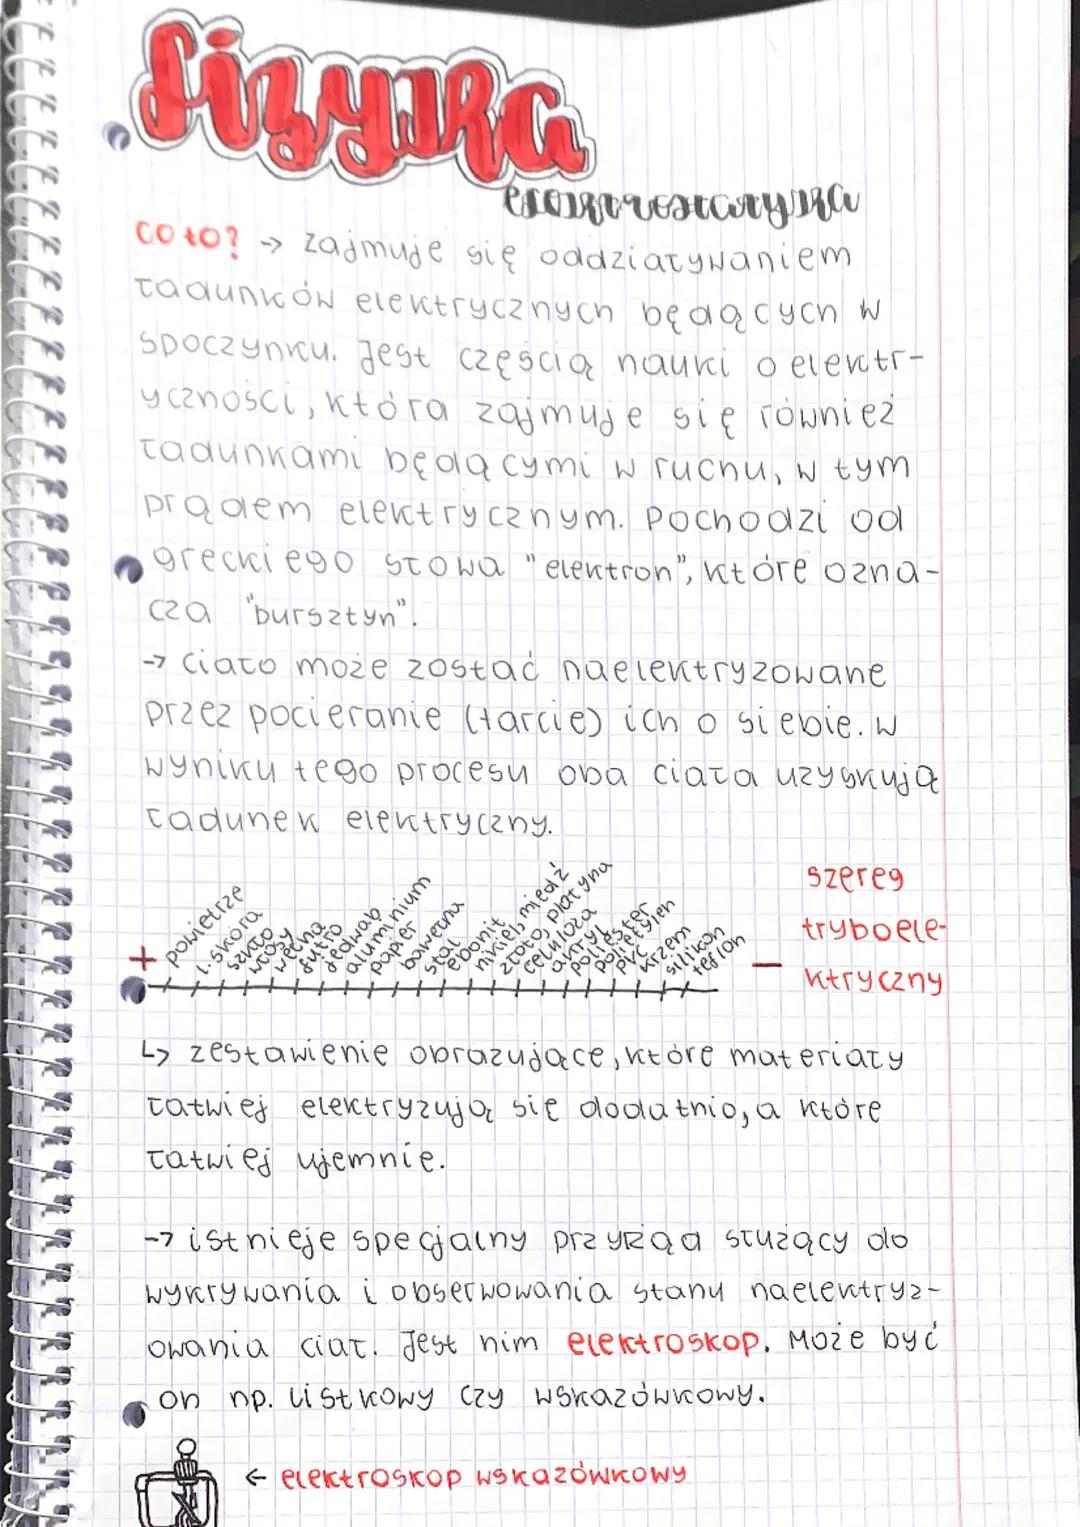 fizyka
elektrostatyka
co to? → zajmuje się oddziaływaniem
ładunków elektrycznych będących w
spoczynku. Jest częścią nauki o elektr-
yczności, która zajmuje się również
ładunkami będącymi w ruchu, w tym
prądem elektrycznym. Pochodzi od
greckiego słowa "elektron", które ozna-
cza "bursztyn".
→ Ciało może zostać naelektryzowane
przez pocieranie (tarcie) ich o siebie. W
wyniku tego procesu oba ciała uzyskują
ładunek elektryczny.
szereg
tryboele-
ktryczny
+ powietrze l. skóra szkło włosy wełna futro jedwab aluminium papier bawełna stal ebonit nikiel, miedź złoto, platyna celuloza akryl poliester polietylen PVC krzem silikon teflon −
↳ zestawienie obrazujące, które materiały
łatwiej elektryzują się dodatnio, a które
łatwiej ujemnie.
→ istnieje specjalny przyrząd służący do
wykrywania i obserwowania stanu naelektryz-
owania ciał. Jest nim elektroskop. Może być
on np. listkowy czy wskazówkowy.
← elektroskop wskazówkowy